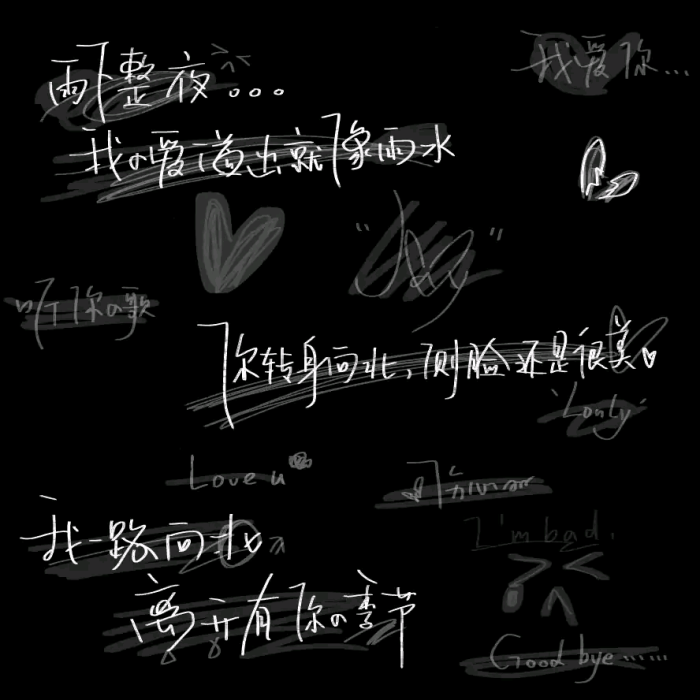 雨下整夜...
我爱你...
我の爱溢出就像雨水
听你の歌
你转身向北,侧脸还是很美
Love u
我一路向北
I'm bad.
离开有你の季节
Good bye......